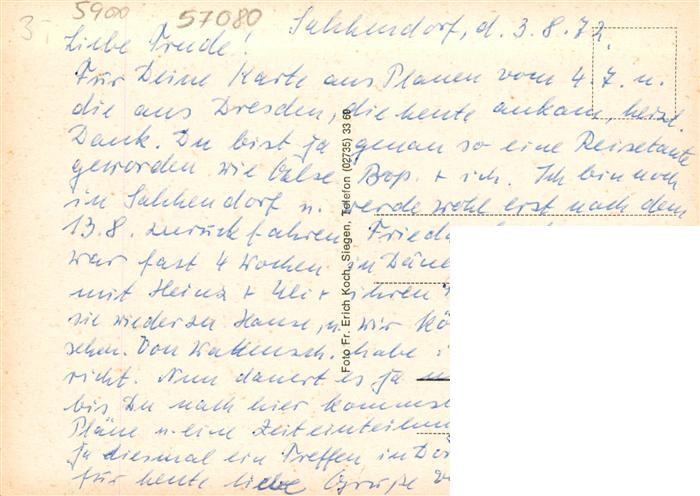 3,- 5900 57080
Salchendorf, d. 3.8.72.
Liebe Trude!
Für Deine Karte aus Plauen vom 4.7. u.
die aus Dresden, die heute ankam, herzl.
Dank. Du bist ja genau so eine Reisetante
geworden wie + ich. Ich bin noch
in Salchendorf u. werde wohl erst nach dem
13.8. zurückfahren.
war fast 4 Wochen in
mit Heinz + + ihren
sie wieder zu Hause, u. wir
sehen. Von habe
richt. Nun dauert es ja
bis Du nach hier kommst
Pläne u. eine Zeiteinteilung
ja diesmal ein Treffen in
für heute liebe Grüße
Foto Fr. Erich Koch, Siegen, Telefon (02735) 33 60